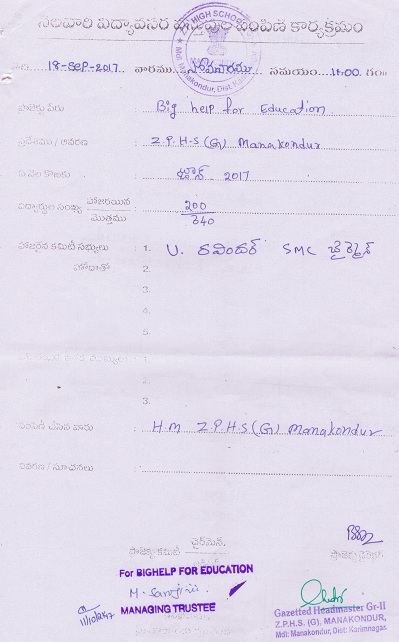 నెలవారి విద్యావసర వస్తువుల పంపిణీ కార్యక్రమం
HIGH SCHOOL
Mdl: Manakondur, Dist.
తేది 18-Sep-2017 వారము సోమవారము సమయం 11:00 గం
ప్రాజెక్టు పేరు : Big help for Education
ప్రదేశము / ఆవరణ : Z.P.H.S (G) Manakondur
ఏ నెల కొరకు : జూన్ 2017
విద్యార్థుల సంఖ్య హాజరయిన : 200
మొత్తము 340
హాజరైన కమిటీ సభ్యులు : 1. V. రవిందర్ SMC చైర్మెన్
హోదాతో 2.
3.
4.
5.
1.
2.
3.
పంపిణీ చేసిన వారు : H.M Z.P.H.S (G) Manakondur
వివరణ / సూచనలు :
చైర్‌మెన్,
ప్రాజెక్టు కమిటీ
ప్రాజెక్టు
For BIGHELP FOR EDUCATION
MANAGING TRUSTEE
Gazetted Headmaster Gr-II
Z.P.H.S. (G). MANAKONDUR,
Mdl: Manakondur, Dist: Karimnagar.